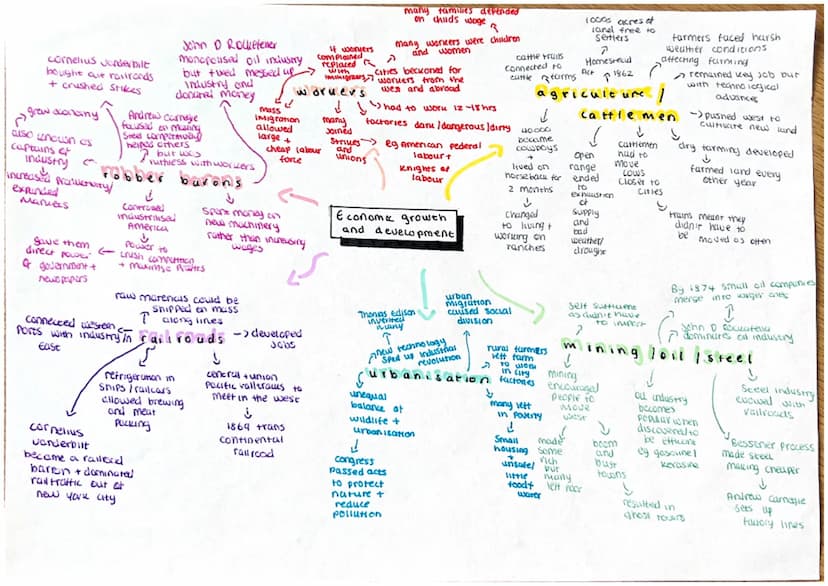 Economic growth
and development
workers
if workers
complained
replaced
with
immigrants
many families depended
on childs wage
many workers were children
and women
cities beckoned for
workers from the
west and abroad
had to work 12-18 hrs
factories dark/dangerous/dirty
many
joined
strikes
and
unions
eg American federal
labour +
knights of
labour
mass
immigration
allowed
large +
cheap labour
force
robber barons
cornelius vanderbilt
bought out railroads
+ crushed strikes
John D Rockefeller
monopolised oil industry
but
industry and
donated money
grew economy
Andrew carnegie
focused on making
steel competitively/
helped others
but was
ruthless with workers
also known as
captains of
industry
increased productivity/
expanded
markets
controlled
industrialised
America
power to
crush competition
+ maximise profits
gave them
direct power
of government +
newspapers
Spent money on
new machinery
rather than increasing
wages
railroads
raw materials could be
shipped on mass
along lines
connected western
ports with industry in
East
developed
jobs
refrigeration in
ships/railcars
allowed brewing
and meat
packing
central + union
Pacific railroads to
meet in the west
1869 trans
continental
railroad
cornelius
vanderbilt
became a railroad
barron + dominated
rail traffic out of
new york city
urbanisation
Thomas edison
invented
new technology
sped up industrial
revolution
urban
migration
caused social
division
rural farmers
left farm
to work
in city
factories
many left
in poverty
Small
housing +
unsafe/
little
food +
water
unequal
balance of
wildlife +
urbanisation
congress
passed acts
to protect
nature +
reduce
pollution
mining/oil/steel
Self sufficient
as didn't have
to import
By 1874 small oil companies
merge into larger ones
John D Rockefeller
dominates oil industry
mining
encouraged
people to
move
west
made
some
rich
but
many
left poor
boom
and
bust
towns
resulted in
ghost towns
oil industry
becomes
popular when
discovered to
be efficient
eg gasoline/
kerosine
Steel industry
evolved with
railroads
Bessemer process
made steel
making cheaper
Andrew carnegie
sets up
factory lines
agriculture/
cattlemen
cattle trails
connected to
cattle farms
1000s acres of
land free to
settlers
Homestead
Act 1862
farmers faced harsh
weather conditions
affecting farming
remained key job but
with technological
advances
pushed west to
cultivate new land
dry farming developed
farmed land every
other year
40000
became
cowboys
+
lived on
horseback for
2 months
changed
to living +
working on
ranches
open
range
ended
to
exhaustion
of
supply
and
bad
weather/
drought
cattlemen
had to
move
cows
closer to
cities
trains meant they
didn't have to
be moved as often